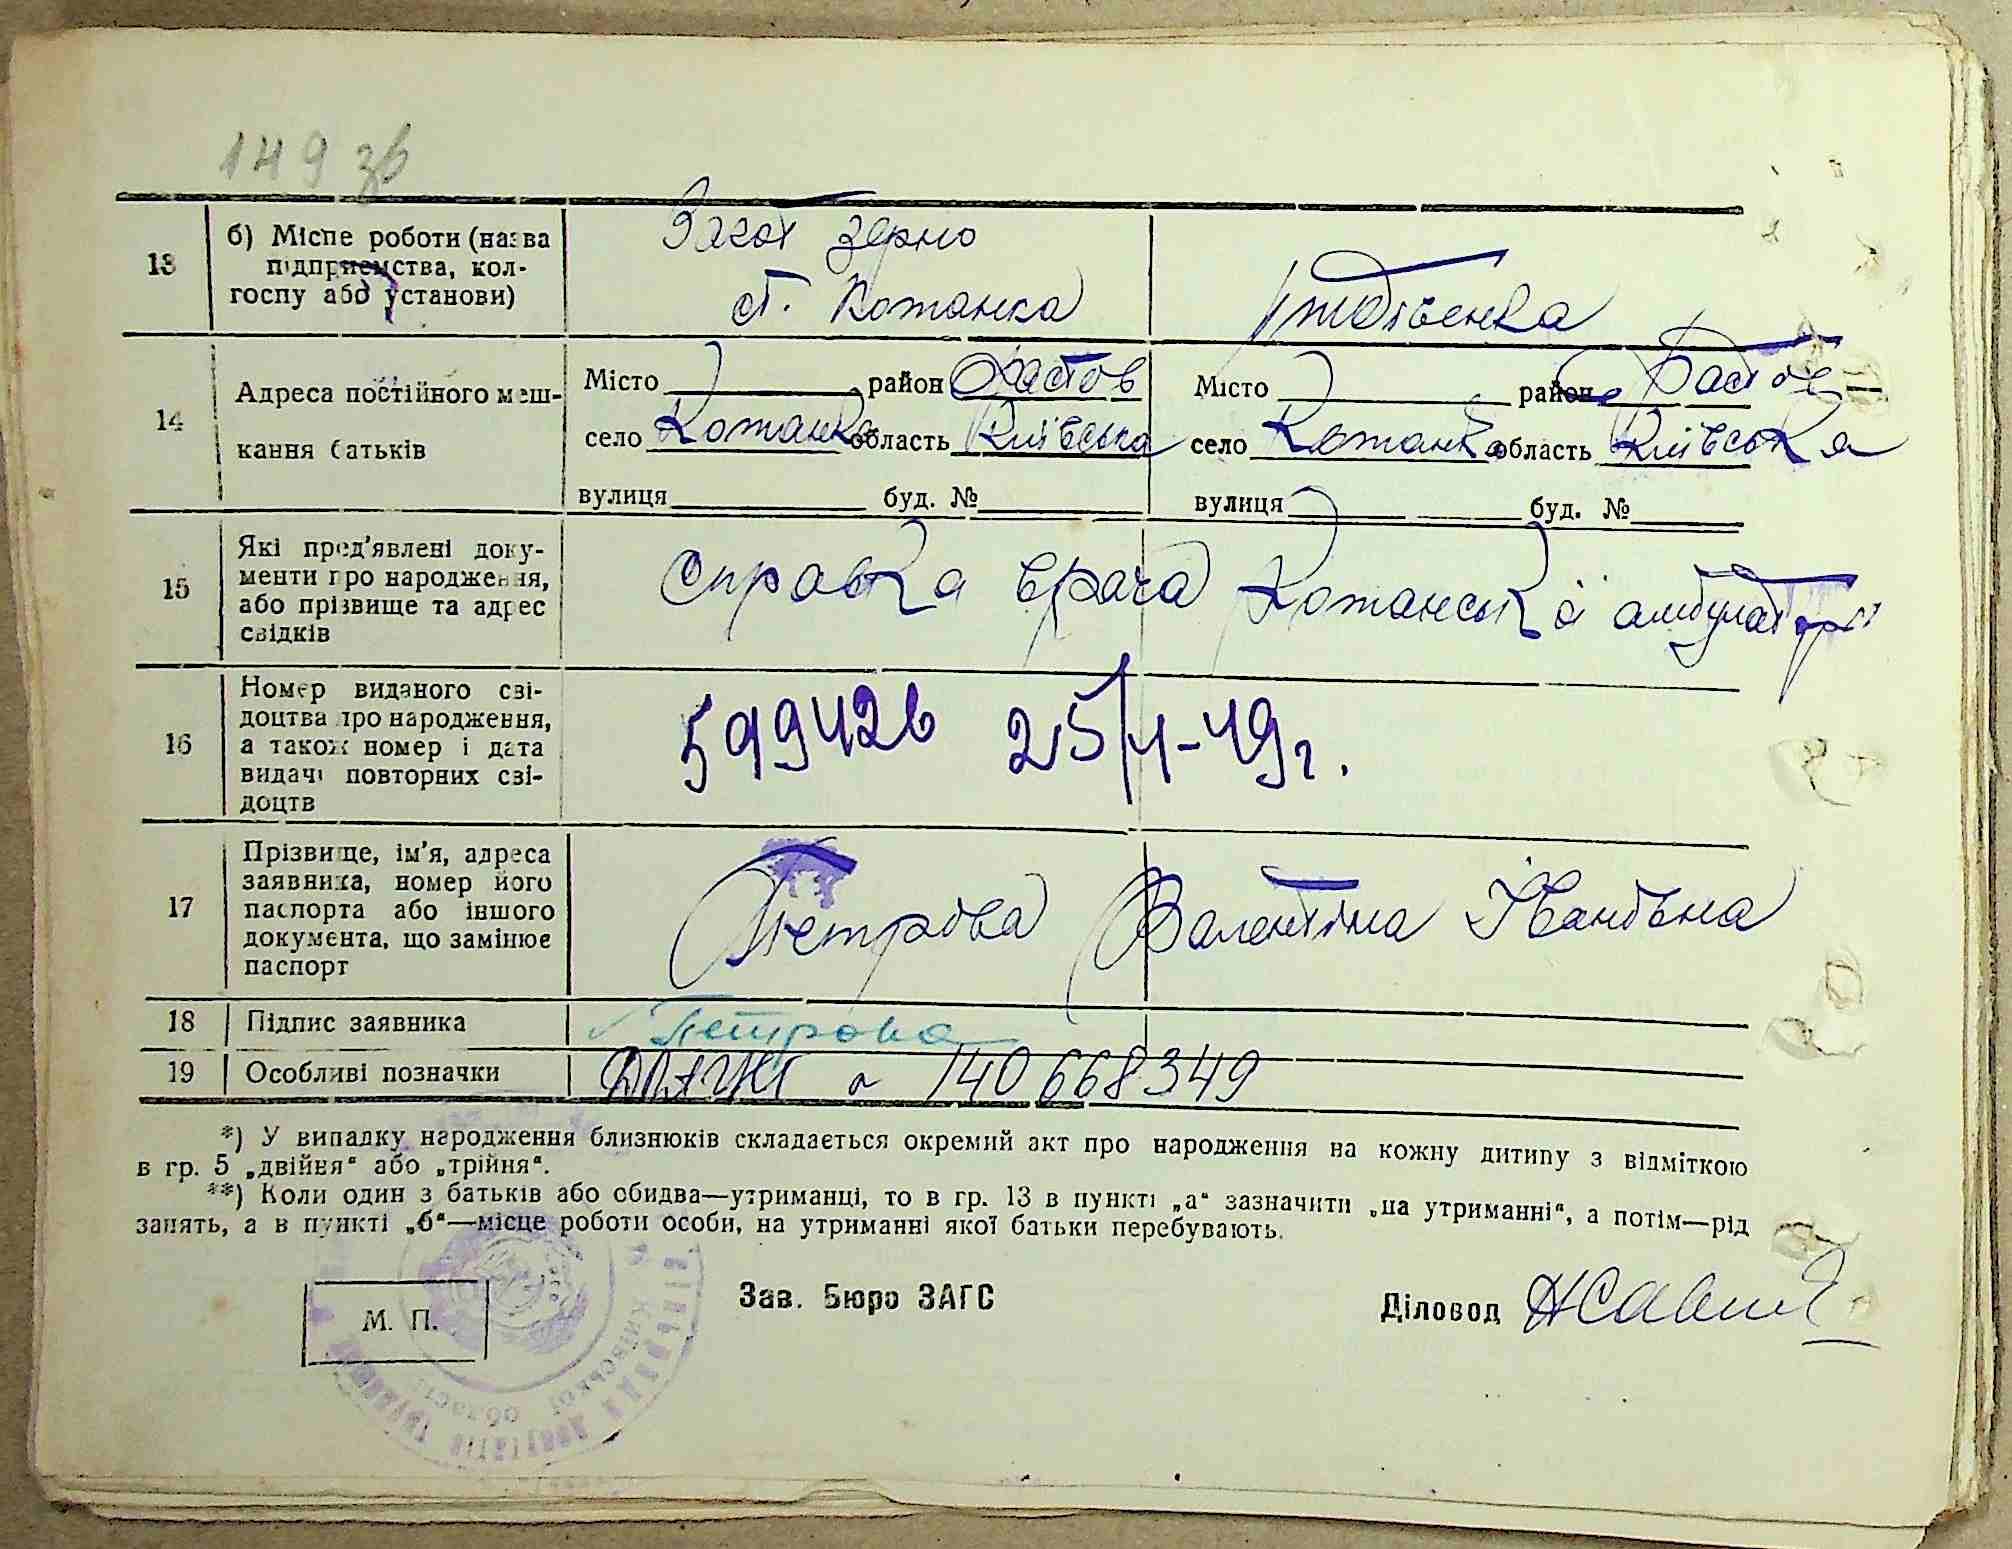 149 зв
13 б) Місце роботи (назва Загот зерно
підприємства, кол-
госпу або установи) ст. Кожанка
14 Адреса постійного меш- Місто район Фастов Місто район Фастов
кання батьків село Кожанка область Київська село Кожанка область Київська
вулиця буд. № вулиця буд. №
15 Які пред'явлені доку-
менти про народження, Справка врача Кожанської амбулаторії
або прізвище та адрес
свідків
16 Номер виданого сві-
доцтва про народження, 599426 25/1-49г.
а також номер і дата
видачі повторних сві-
доцтв
17 Прізвище, ім'я, адреса
заявника, номер його
паспорта або іншого Петрова Валентіна Івановна
документа, що замінює
паспорт
18 Підпис заявника Петрова
19 Особливі позначки 140668349
*) У випадку народження близнюків складається окремий акт про народження на кожну дитину з відміткою
в гр. 5 „двійня“ або „трійня“.
**) Коли один з батьків або обидва—утриманці, то в гр. 13 в пункті „а“ зазначити „на утриманні“, а потім—рід
занять, а в пункті „б“—місце роботи особи, на утриманні якої батьки перебувають.
М. П. Зав. Бюро ЗАГС Діловод
КИЇВСЬКОЇ ОБЛАСТІ